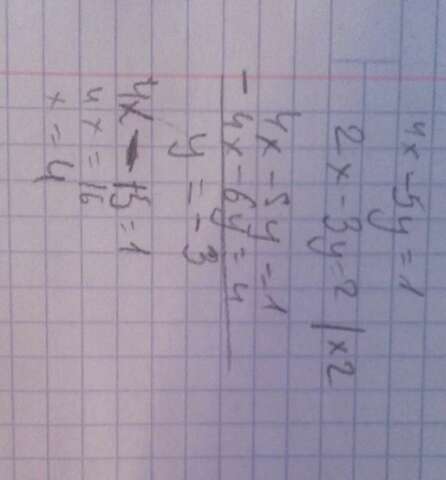 4x - 5y = 1
2x - 3y = 2 | x2
4x - 5y = 1
- 4x - 6y = 4
y = -3
4x - 15 = 1
4x = 16
x = 4